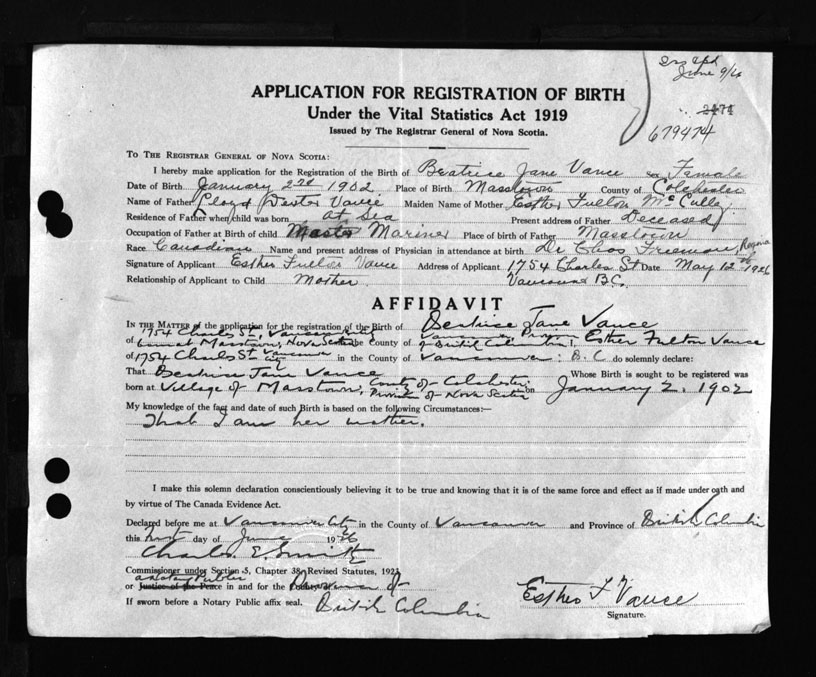 June 9/26
APPLICATION FOR REGISTRATION OF BIRTH
Under the Vital Statistics Act 1919
2474
Issued by The Registrar General of Nova Scotia.
679474
TO THE REGISTRAR GENERAL OF NOVA SCOTIA:
I hereby make application for the Registration of the Birth of Beatrice Jane Vance Sex Female
Date of Birth January 2nd 1902 Place of Birth Masstown County of Colchester
Name of Father Lloyd Dexter Vance Maiden Name of Mother Esther Fulton McCully
Residence of Father when child was born at Sea Present address of Father Deceased
Occupation of Father at Birth of child Master Mariner Place of birth of Father Masstown
Race Canadian Name and present address of Physician in attendance at birth Dr Chas Freeman, Regina
Signature of Applicant Esther Fulton Vance Address of Applicant 1754 Charles St Date May 12th 1926
Relationship of Applicant to Child Mother Vancouver B.C.
AFFIDAVIT
IN THE MATTER of the application for the registration of the Birth of Beatrice Jane Vance
of 1754 Charles St, Vancouver born at Masstown, Nova Scotia the County of Vancouver Province of British Columbia, I, Esther Fulton Vance
of 1754 Charles St Vancouver City in the County of Vancouver: B.C do solemnly declare:
That Beatrice Jane Vance Whose Birth is sought to be registered was
born at Village of Masstown, County of Colchester, Province of Nova Scotia on January 2, 1902
My knowledge of the fact and date of such Birth is based on the following Circumstances:—
That I am her mother.
I make this solemn declaration conscientiously believing it to be true and knowing that it is of the same force and effect as if made under oath and
by virtue of The Canada Evidence Act.
Declared before me at Vancouver City in the County of Vancouver and Province of British Columbia
this first day of June 1926
Charles E. Smith
Commissioner under Section 5, Chapter 38, Revised Statutes, 1923
a Notary Public
or Justice of the Peace in and for the Province of
If sworn before a Notary Public affix seal. British Columbia
Esther F. Vance
Signature.